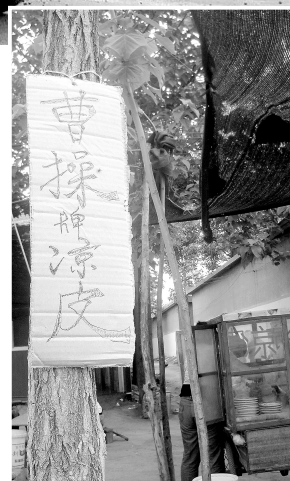 曹操牌凉皮